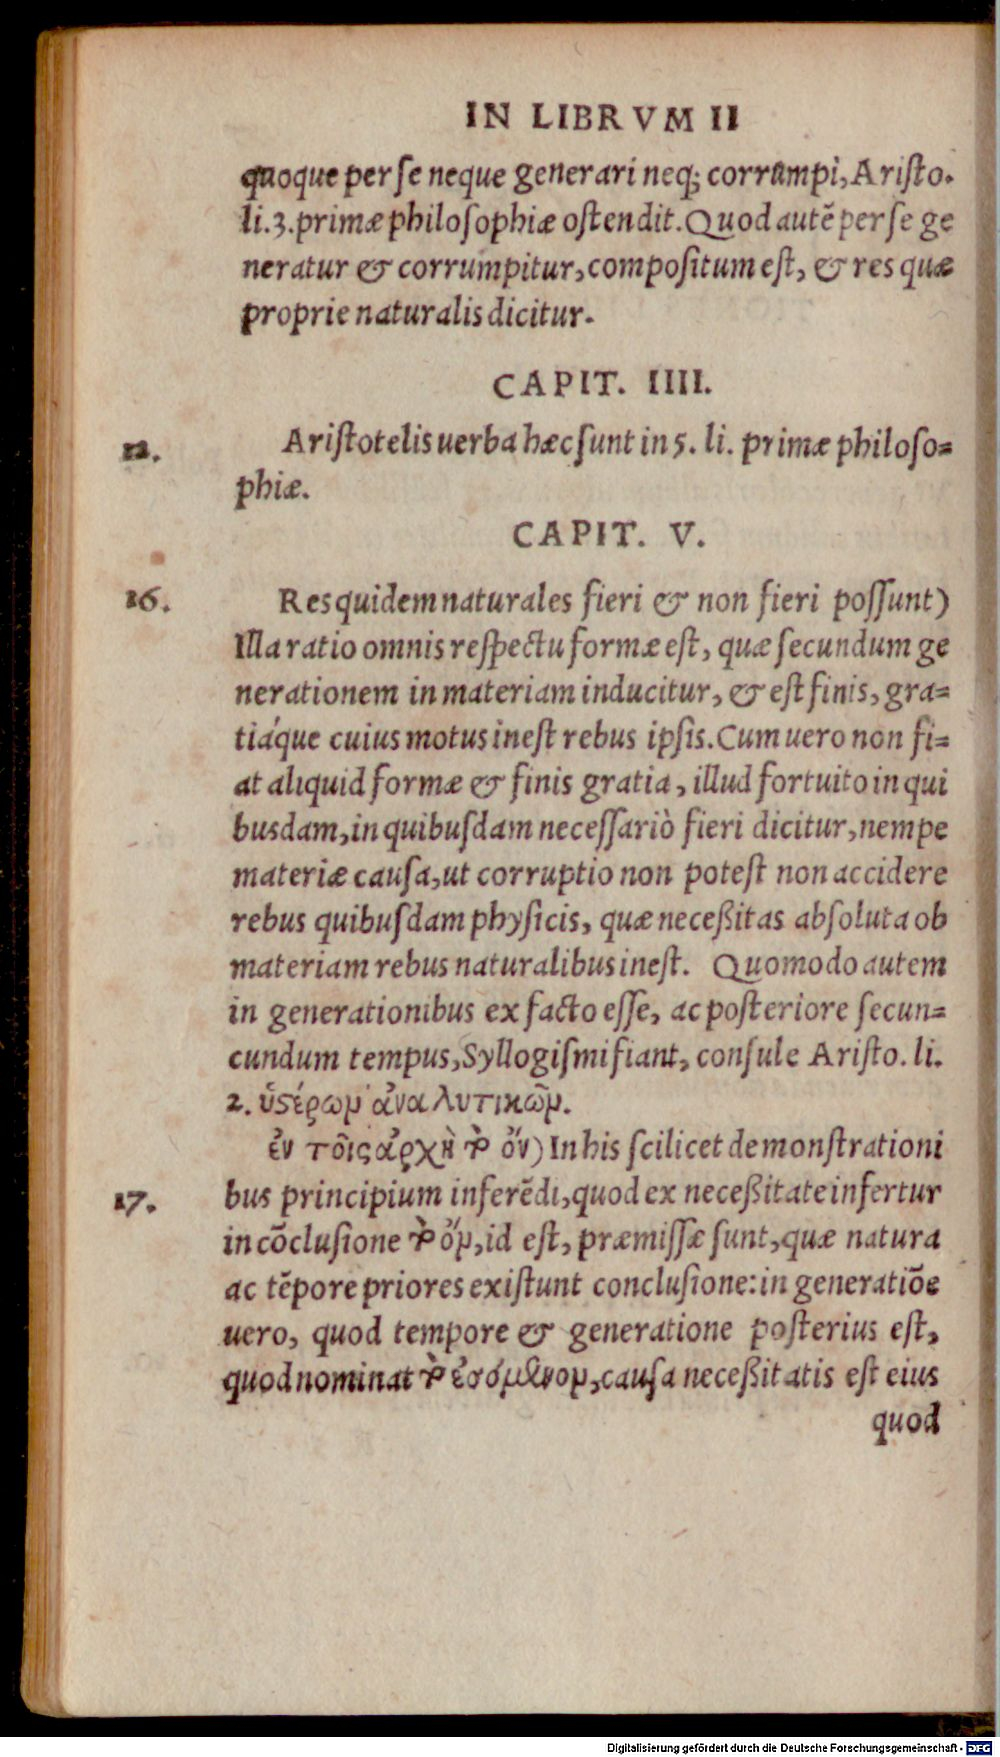 IN LIBRVM II
quoque per se neque generari neq; corrumpi, Aristo.
li. 3. primæ philosophiæ ostendit. Quod autẽ per se ge
neratur & corrumpitur, compositum est, & res quæ
proprie naturalis dicitur.
CAPIT. IIII.
12. Aristotelis uerba hæc sunt in 5. li. primæ philoso=
phiæ.
CAPIT. V.
16. Res quidem naturales fieri & non fieri possunt)
Illa ratio omnis respectu formæ est, quæ secundum ge
nerationem in materiam inducitur, & est finis, gra=
tiáque cuius motus inest rebus ipsis. Cum uero non fi=
at aliquid formæ & finis gratia, illud fortuito in qui
busdam, in quibusdam necessariò fieri dicitur, nempe
materiæ causa, ut corruptio non potest non accidere
rebus quibusdam physicis, quæ neceßitas absoluta ob
materiam rebus naturalibus inest. Quomodo autem
in generationibus ex facto esse, ac posteriore secun=
cundum tempus, Syllogismi fiant, consule Aristo. li.
2. ὑϛέρωμ ἀναλυτικῶμ.
ἐν τοῖς ἀρχὴ τὸ ὄν) In his scilicet demonstrationi
17. bus principium inferẽdi, quod ex neceßitate infertur
in cõclusione τὸ ὄμ, id est, præmissæ sunt, quæ natura
ac tẽpore priores existunt conclusione: in generatiõe
uero, quod tempore & generatione posterius est,
quod nominat τὸ ἐσόμενομ, causa neceßitatis est eius
quod
Digitalisierung gefördert durch die Deutsche Forschungsgemeinschaft - DFG